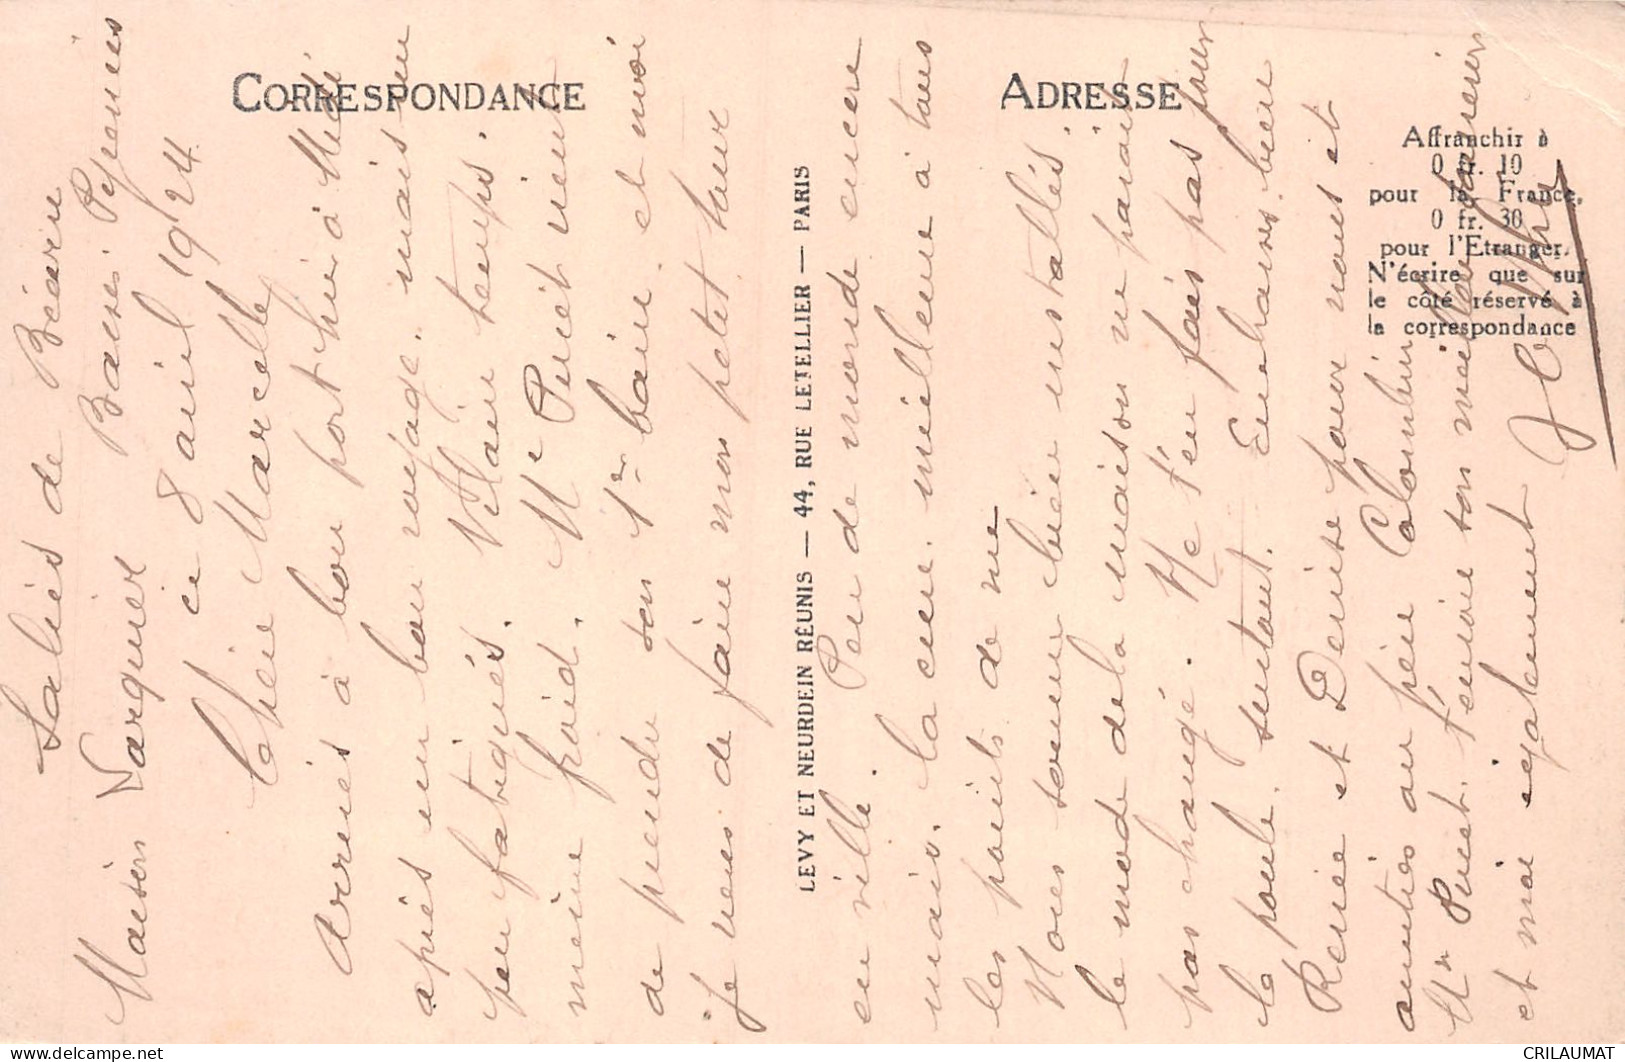 CORRESPONDANCE
ADRESSE
Affranchir à
0 fr. 10
pour la France,
0 fr. 30
pour l'Etranger.
N'écrire que sur
le côté réservé à
la correspondance
LEVY ET NEURDEIN RÉUNIS — 44, RUE LETELLIER — PARIS
Saliès de Béarn
Maison Basses Pyrenées
ce 8 avril 1924
Chère Marcelle
Arrivés à bon port hier à Midi
après un bon voyage. mais un
peu fatigués. Vilain temps.
même froid. Me Puiet vient
de prendre son 1er bain, et moi
je viens de faire mon petit tour
en ville. Peu de monde encore
mais. la cure. meilleure à tous
les points de vue
Nous sommes bien installés.
le mode de la maison ne parait
pas changé. Ne t'en fais pas pour
la poule. surtout. Embrasses. bien
Renée et Denise pour nous et
amitiés au père Colombin
Mr Puiet. t'envoie son meilleur
et moi également
CRILAUMAT